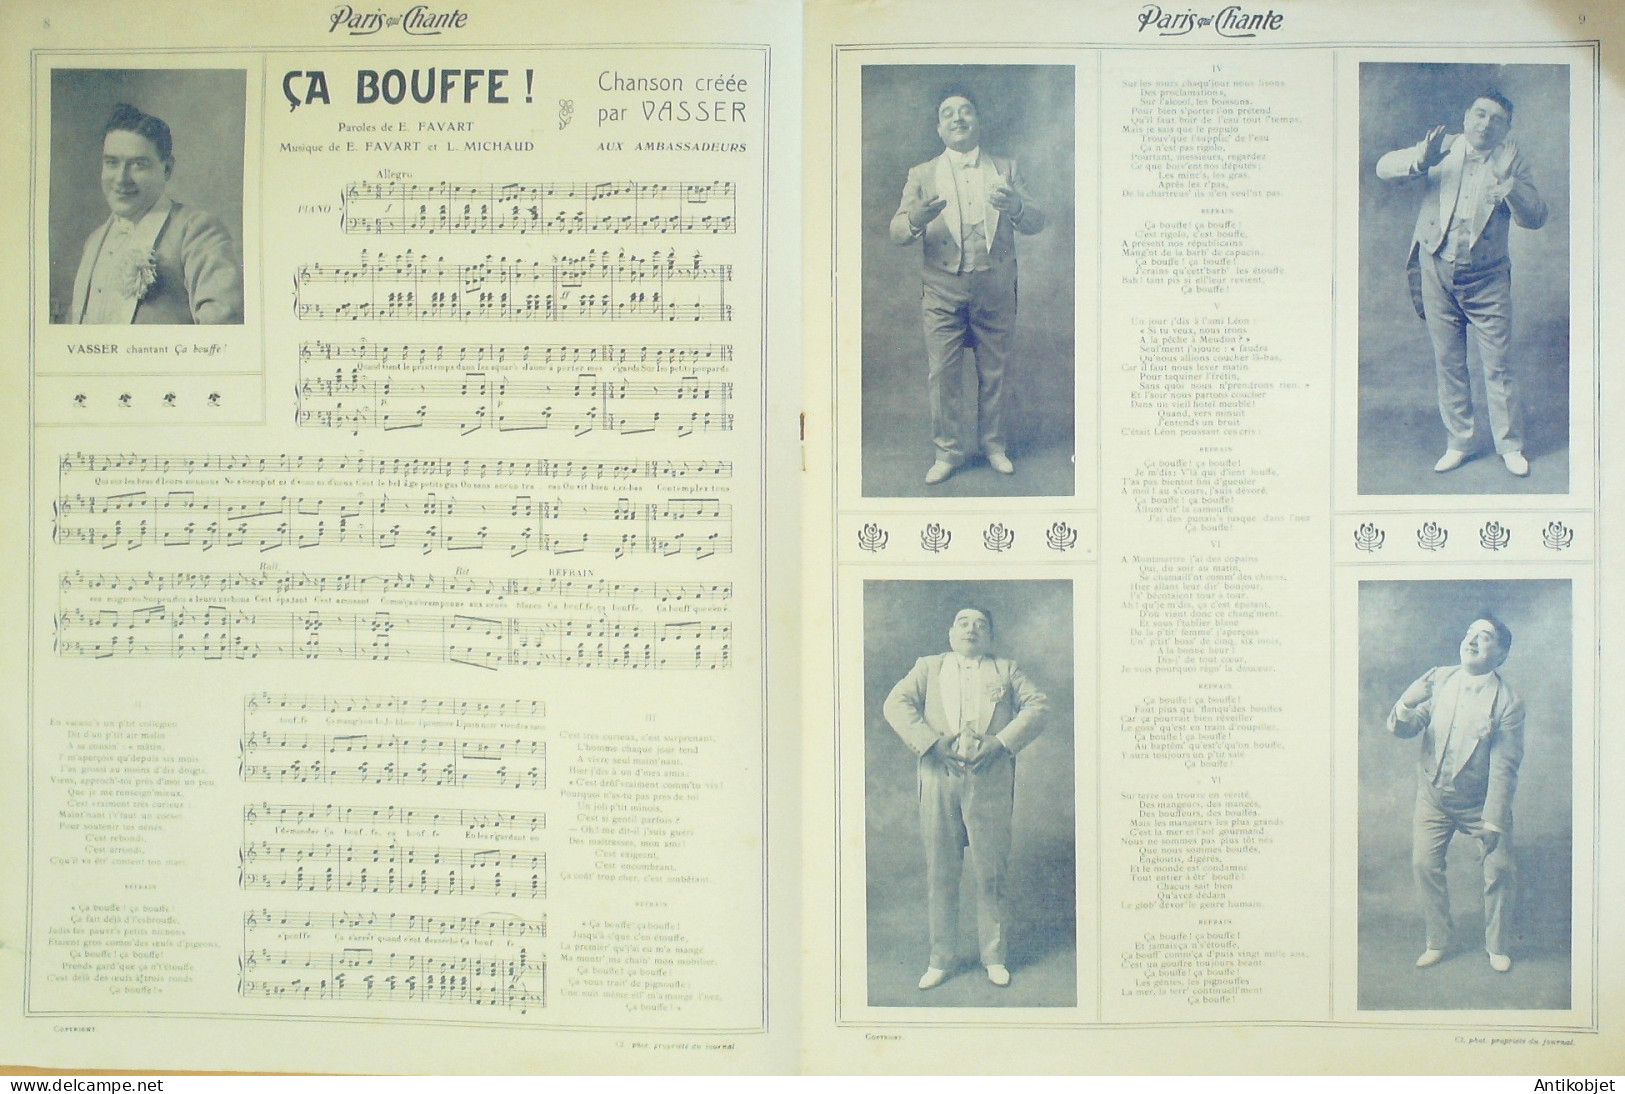 8
Paris qui Chante
ÇA BOUFFE !
Paroles de E. FAVART
Musique de E. FAVART et L. MICHAUD
Chanson créée
par VASSER
AUX AMBASSADEURS
VASSER chantant Ça bouffe !
Allegro
PIANO
Quand vient le printemps dans les squar's d'aime à porter mes rigards Sur les petits poupards
Qui sur les bras d'leurs nounous Ne s'occup'nt ni d'vous ni d'nous C'est le bel âge petits gas Où sans aucun tra . cas On vit bien ici-bas Contemplez tous
Rall. Rit REFRAIN
ces mignons Suspendus à leurs nichons C'est épatant C'est amusant Comme ça s'cramponne aux seins blancs Ça bouf.fe, ça bouffe, Ça bouff' que c'en é.
II
En vacanc's un p'tit collégien
Dit d'un p'tit air malin
A sa cousin' : « mâtin,
J'm'aperçois qu'depuis six mois
T'as grossi au moins d'dix doigts.
Viens, approch'-toi près d'moi un peu
Que je me renseign'mieux,
C'est vraiment très curieux :
Maint'nant i't'faut un corset
Pour soutenir tes nénés.
C'est rebondi,
C'est arrondi,
C'qu'il va êtr' content ton mari.
REFRAIN
« Ça bouffe ! ça bouffe !
Ça fait déjà d'l'esbrouffe,
Jadis tes pauvr's petits nichons
Etaient gros comm'des œufs d'pigeons,
Ça bouffe ! ça bouffe !
Prends gard'que ça n't'étouffe
C'est déjà des œufs à trois ronds
Ça bouffe ! »
III
C'est très curieux, c'est surprenant,
L'homme chaque jour tend
A vivre seul maint'nant.
Hier j'dis à un d'mes amis :
« C'est drôl'vraiment comm'tu vis !
Pourquoi n'as-tu pas près de toi
Un joli p'tit minois,
C'est si gentil parfois ?
— Oh ! me dit-il j'suis guéri
Des maîtresses, mon ami !
C'est exigeant,
C'est encombrant,
Ça coût' trop cher, c'est embêtant.
REFRAIN
« Ça bouffe ! ça bouffe !
Jusqu'à c'que c'en étouffe,
La premier' qu'j'ai eu m'a mangé
Ma montr' ma chaîn' mon mobilier,
Ça bouffe ! ça bouffe !
Ça vous trait' de pignouffe :
Une nuit même ell' m'a mangé l'nez,
Ça bouffe ! »
COPYRIGHT
Cl. phot. propriété du journal.
Paris qui Chante
9
IV
Sur les murs chaqu'jour nous lisons
Des proclamations,
Sur l'alcool, les boissons.
Pour bien s'porter l'on prétend
Qu'il faut boir de l'eau tout l'temps.
Mais je sais que le populo
Trouv'que l'supplic' de l'eau
Ça n'est pas rigolo,
Pourtant, messieurs, regardez
Ce que boiv'ent nos députés :
Les minc's, les gras,
Après les r'pas,
De la chartreus' ils n'en veul'nt pas.
REFRAIN
Ça bouffe ! ça bouffe !
C'est rigolo, c'est bouffe,
A présent nos républicains
Mang'nt de la barb' de capucin.
Ça bouffe ! ça bouffe !
J'crains qu'cett'barb' les étouffe
Bah ! tant pis si ell'leur revient,
Ça bouffe !
V
Un jour j'dis à l'ami Léon :
« Si tu veux, nous irons
A la pêche à Meudon ? »
Seul'ment j'ajoute : « faudra
Qu'nous allions coucher là-bas,
Car il faut nous lever matin
Pour taquiner l'frétin,
Sans quoi nous n'prendrons rien. »
Et l'soir nous partons coucher
Dans un vieil hôtel meublé !
Quand, vers minuit
J'entends un bruit
C'était Léon poussant ces cris :
REFRAIN
Ça bouffe ! ça bouffe !
Je m'dis : V'là qui d'vient louffe,
T'as pas bientôt fini d'gueuler
A moi ! au s'cours, j'suis dévoré,
Ça bouffe ! ça bouffe !
Allum'vit' la camoufle
J'ai des punais's jusque dans l'nez
Ça bouffe !
VI
A Montmartre j'ai des copains
Qui, du soir au matin,
Se chamaill'nt comm' des chiens,
Hier allant leur dir' bonjour,
I's' bécotaient tour à tour.
Ah ! qu'je m'dis, ça c'est épatant,
D'où vient donc ce chang'ment.
Et sous l'tablier blanc
De la p'tit' femme' j'aperçois
Un' p'tit' boss' de cinq, six mois,
A la bonne heur !
Dis-j' de tout cœur,
Je vois pourquoi règn' la douceur.
REFRAIN
Ça bouffe ! ça bouffe !
Faut plus qui' flanqu'des bouffes
Car ça pourrait bien réveiller
Le goss' qu'est en train d'roupiller.
Ça bouffe ! ça bouffe !
Au baptêm' qu'est'c'qu'on bouffe,
Y'aura toujours un p'tit salé
Ça bouffe !
VI
Sur terre on trouve en vérité,
Des mangeurs, des mangés,
Des bouffeurs, des bouffés.
Mais les mangeurs les plus grands
C'est la mer et l'sol gourmand
Nous ne sommes pas plus tôt nés
Que nous sommes bouffés,
Engloutis, digérés,
Et le monde est condamné
Tout entier à êtr' bouffé !
Chacun sait bien
Qu'avec dédain
Le glob' dévor' le genre humain.
REFRAIN
Ça bouffe ! ça bouffe !
Et jamais ça n's'étouffe,
Ça bouff' comm'ça d'puis vingt mille ans,
C'est un gouffre toujours béant.
Ça bouffe ! ça bouffe !
Les génies, les pignouffes
La mer, la terr' continuell'ment
Ça bouffe !
COPYRIGHT.
Cl. phot. propriété du journal.
Antikobjet